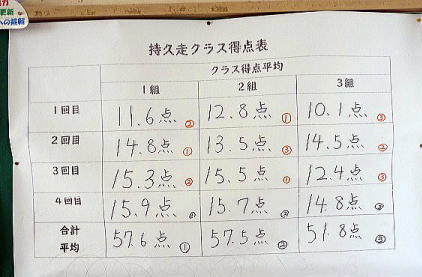 更新
への挑戦
持久走クラス得点表
クラス得点平均
1組 2組 3組
1回目 11.6点 ② 12.8点 ① 10.1点 ③
2回目 14.8点 ① 13.5点 ③ 14.5点 ②
3回目 15.3点 ② 15.5点 ① 12.4点 ③
4回目 15.9点 ① 15.7点 ② 14.8点 ③
合計
平均 57.6点 ① 57.5点 ② 51.8点 ③